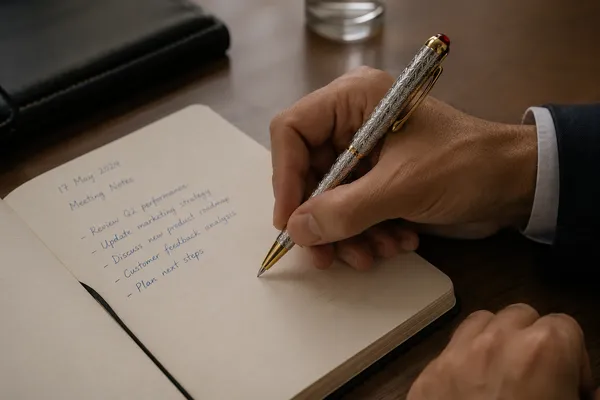 17 May 2024
Meeting Notes
- Review Q2 performance
- Update marketing strategy
- Discuss new product roadmap
- Customer feedback analysis
- Plan next steps